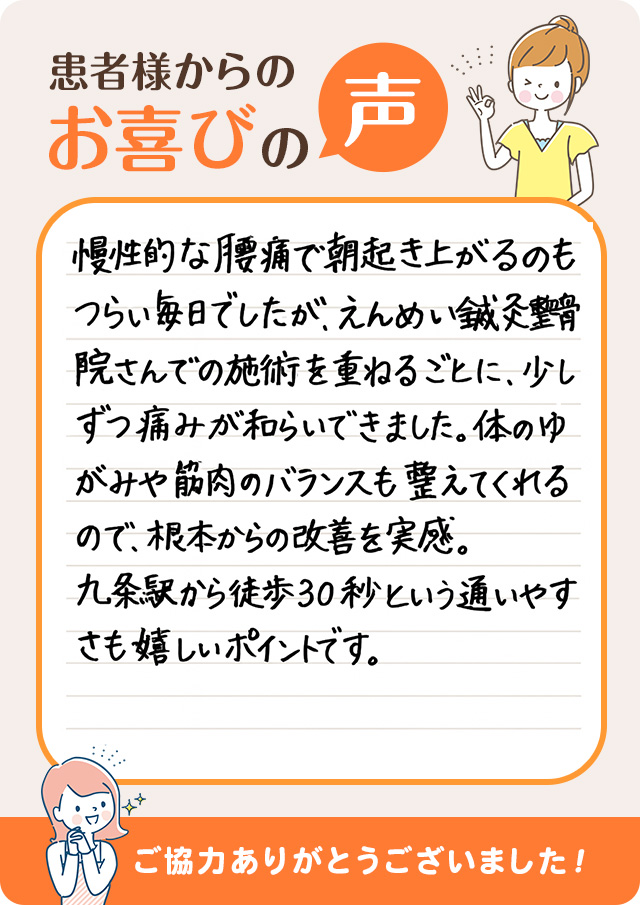 患者様からの
お喜びの声
慢性的な腰痛で朝起き上がるのも
つらい毎日でしたが、えんめい鍼灸整骨
院さんでの施術を重ねるごとに、少し
ずつ痛みが和らいできました。体のゆ
がみや筋肉のバランスも整えてくれる
ので、根本からの改善を実感。
九条駅から徒歩30秒という通いやす
さも嬉しいポイントです。
ご協力ありがとうございました！